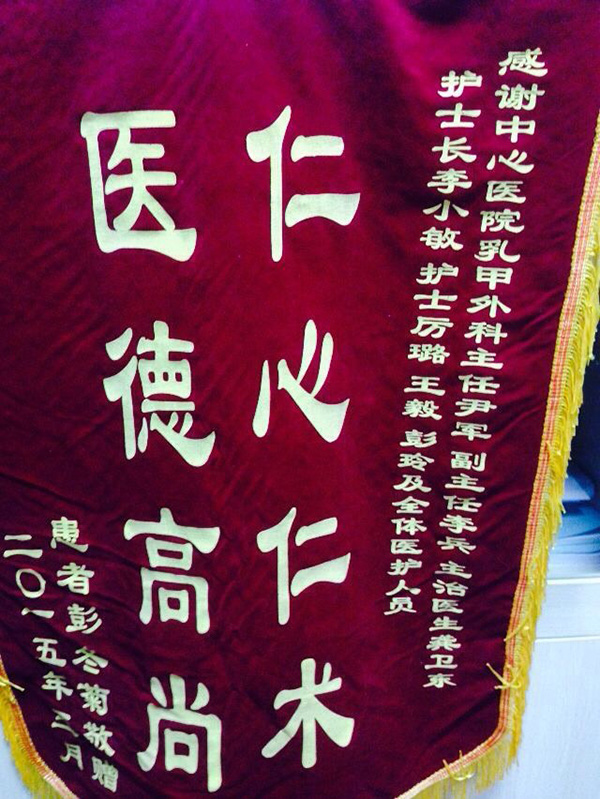 感谢中心医院乳甲外科主任尹军 副主任李兵 主治医生龚卫东
护士长李小敏 护士厉璐 王毅 彭玲及全体医护人员
仁心仁术
医德高尚
患者彭冬菊敬赠
二〇一五年二月